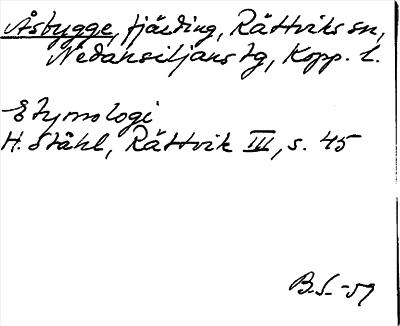 Åsbygge, fjärding, Rättviks sn,
Nedansiljans tg, Kopp. l.
Etymologi
H. Ståhl, Rättvik III, s. 45
B.S.-59